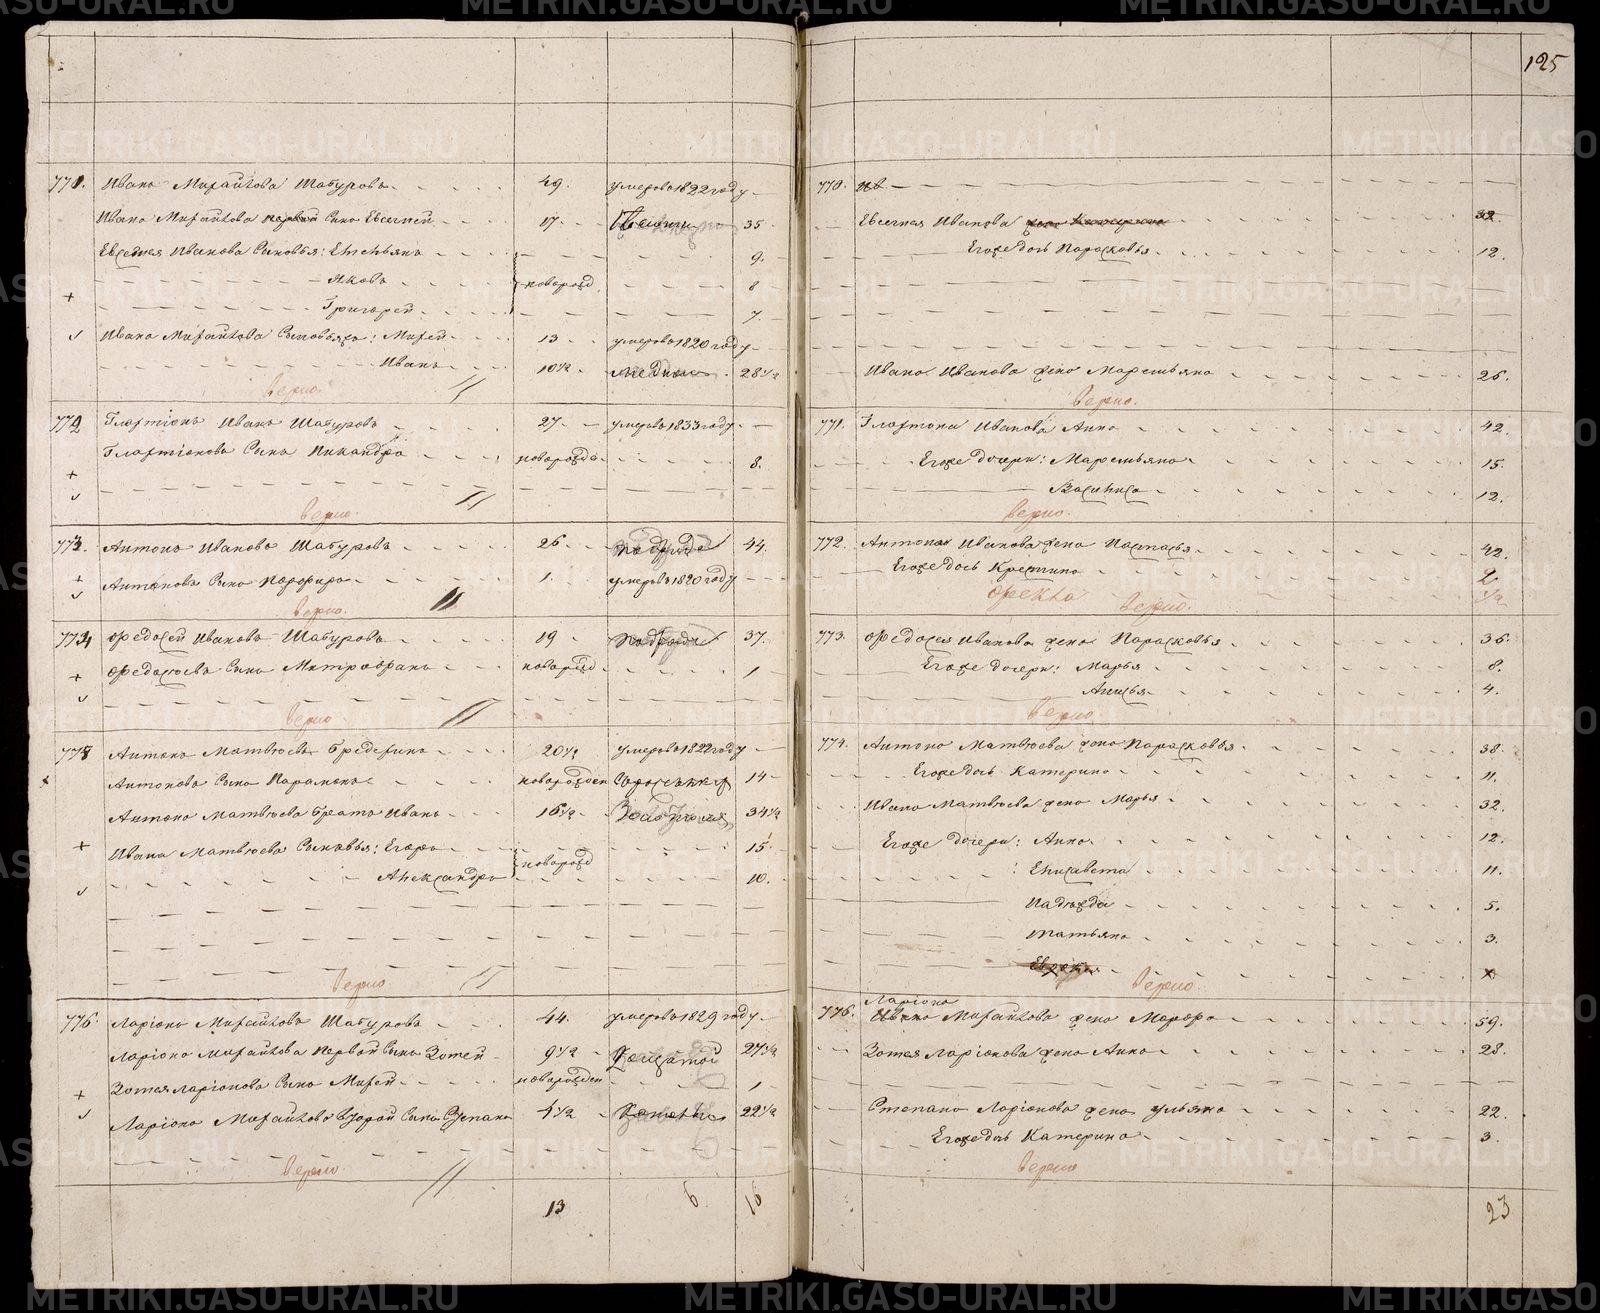 125
770. Иванъ Михайлова Шабуровъ 49. умеръ въ 1822 году
Ивана Михайлова первой сынъ Евсегней 17 35
Евсегнея Иванова сыновья: Емельянъ 9.
Яковъ новорожд. 8
Григорей 7.
Ивана Михайлова сыновья: Михей 13 умеръ въ 1820 году
Иванъ 10½ 28½
верно.
Иванъ Шабуровъ 27 умеръ въ 1833 году
сынъ Никандръ новорожд. 8.
верно.
Антонъ Ивановъ Шабуровъ 26 44.
Антоновъ сынъ Порфиръ 1. умеръ въ 1820 году
верно.
Федосей Ивановъ Шабуровъ 19 37.
Федосеевъ сынъ Митрофанъ новорожд 1
верно
Антонъ Матвеевъ 20½ умеръ въ 1822 году
Антоновъ сынъ Парамонъ новорожден 14
Антона Матвеева братъ Иванъ 16½ 34½
Ивана Матвеева сыновья: Егоръ новорожд 15
Александръ 10.
верно
776. Ларіонъ Михайловъ Шабуровъ 44. умеръ въ 1829 году
Ларіона Михайлова первой сынъ Зотей 9½ 27½
Зотея Ларіонова сынъ Михей новорожден 1
Ларіона Михайлова второй сынъ Степанъ 4½ 22½
верно.
13 6 16
770. Ив
Евсегнея Иванова
Егоже дочь Парасковья 12.
Ивана Иванова жена Маремьяна 26.
верно.
771. Иванова Анна 42.
Егоже дочери: Маремьяна 15.
Василиса 12.
верно.
772. Антона Иванова жена Настасья 42.
Егоже дочь Крестина 2
Фекла ½
верно.
773. Федосея Иванова жена Парасковья 36.
Егоже дочери: Марья 8.
Анисья 4.
верно
774. Антона Матвеева жена Парасковья 38.
Егоже дочь Катерина 11.
Ивана Матвеева жена Марья 32.
Егоже дочери: Анна 12.
Елисавета 11.
Надежда 5.
Татьяна 3.
верно
Ларіона
776. Михайлова жена Марфа 59.
Зотея Ларіонова жена Анна 28.
Степана Ларіонова жена Ульяна 22.
Егоже дочь Катерина 3.
верно
23
METRIKI.GASO-URAL.RU